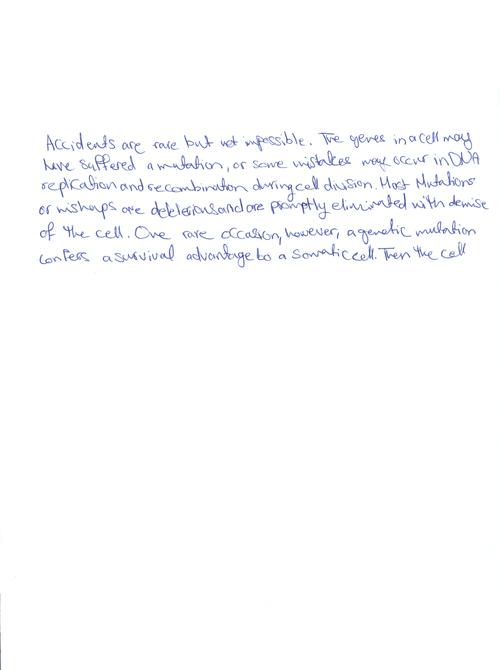 Accidents are rare but not impossible. The genes in a cell may
have suffered a mutation, or some mistakes may occur in DNA
replication and recombination during cell division. Most Mutations
or mishaps are deleterious and are promptly eliminated with demise
of the cell. One rare occasion, however, a genetic mutation
confers a survival advantage to a somatic cell. Then the cell